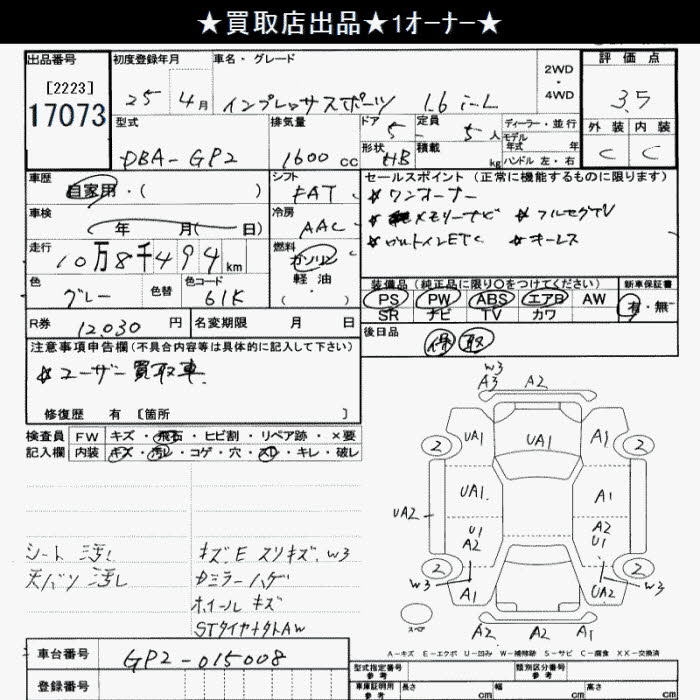 ★買取店出品★1オーナー★
出品番号
[2223]
17073
初度登録年月
25 4月
車名・グレード
インプレッサスポーツ 1.6 i-L
2WD
・
4WD
評価点
3.5
外装 内装
C C
型式
DBA-GP2
排気量
1600 cc
ドア 5
定員 5人
ディーラー・並行
モデル
年式 年
形状 HB
積載 kg
ハンドル 左・右
車歴
自家用・( )
シフト
FAT
車検
年 月( 日)
冷房
AAC
走行
10万8千494km
燃料
ガソリン
軽油
( )
色
グレー
色替
色コード
61K
セールスポイント (正常に機能するものに限ります)
☆ワンオーナー
☆メモリーナビ ☆フルセグTV
☆ビルトインETC ☆キーレス
装備品(純正品に限り○をつけてください)
新車保証書
PS PW ABS エアB AW
SR ナビ TV カワ
有・無
R券 12030 円
名変期限 月 日
後日品
保 取
注意事項申告欄(不具合内容等は具体的に記入して下さい)
☆ユーザー買取車
修復歴 有 [箇所 ]
検査員
記入欄
FW キズ・飛石・ヒビ割・リペア跡・×要
内装 キズ・汚レ・コゲ・穴・スレ・キレ・破レ
シート 汚レ
天バリ 汚レ
キズ、E スリキズ、W3
Dミラーハゲ
ホイールキズ
STタイヤナットAW
W3
A3 A2
2 UA1 UA1 A1 2
UA1 A1
UA2
U1
A2
A2
U1
2 2
W3 W3
A1 UA2
スペア
A2 A2 A1
A-キズ E-エクボ U-凹み W-補修跡 S-サビ C-腐食 XX-交換済
車台番号 GP2-015008
登録番号
型式指定番号
参考
類別区分番号
参考
車庫証明用
参考
長さ cm
幅 cm
高さ cm